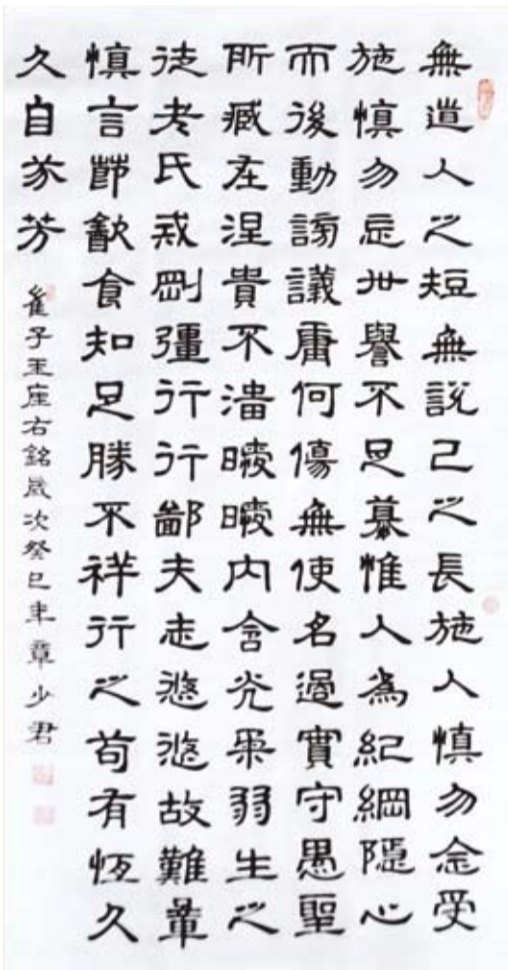 無道人之短無說己之長施人慎勿念受
施慎勿忘世譽不足慕惟人為紀綱隱心
而後動謗議庸何傷無使名過實守愚聖
所臧在涅貴不淄曖曖內含光柔弱生之
徒老氏戒剛彊行行鄙夫志悠悠故難量
慎言節飲食知足勝不祥行之苟有恆久
久自芬芳
崔子玉座右銘歲次癸巳年章少君